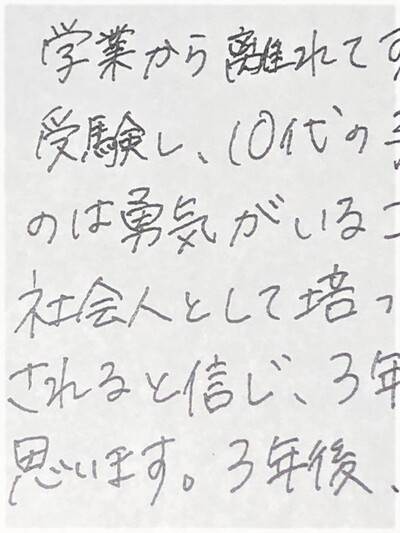 学業から離れて
受験し、10代の
のは勇気がいる
社会人として培っ
されると信じ、3年
思います。3年後、